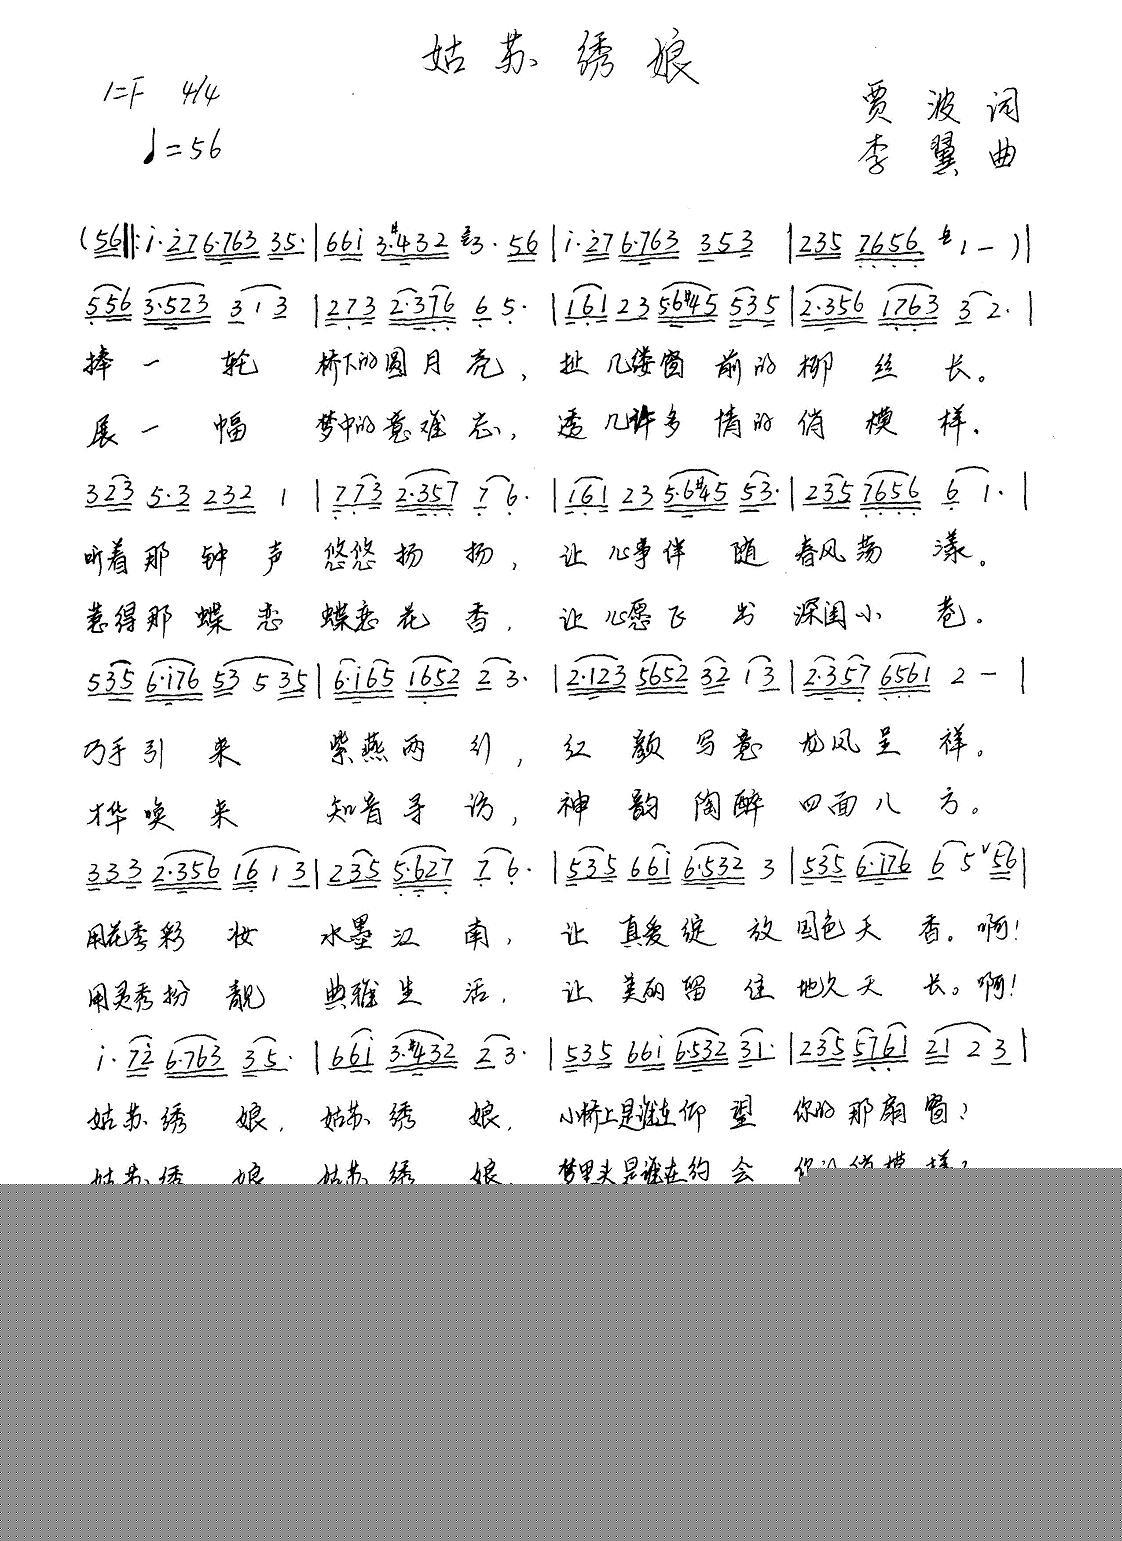 姑苏绣娘
1=F 4/4
贾波词
♩=56
李翼曲
(56‖: i·i76·763 35·|66i 3·#432 3·56|i·i76·763 353|235 7656 1-)|
556 3·523 313|273 2·376 65·|161 23 56#45 535|2·356 1763 32·|
捧一轮桥下的圆月亮,扯几缕窗前的柳丝长。
展一幅梦中的意难忘,透几许多情的俏模样.
323 5·3 232 1|773 2·357 76·|161 23 5·6#45 53·|235 7656 61·|
听着那钟声悠悠扬扬,让心事伴随春风荡漾。
惹得那蝶恋蝶恋花香,让心愿飞出深闺小巷。
535 6·i76 53 5 35|6·i65 1652 23·|2·123 5652 32 13|2·357 6561 2-|
巧手引来紫燕两行,红颜写意龙凤呈祥。
才华唤来知音寻访,神韵陶醉四面八方。
333 2·356 16 13|235 5·627 76·|535 66i 6·532 3|535 6·i76 65ˇ56|
用花季彩妆水墨江南,让真爱绽放国色天香。啊!
用灵秀扮靓典雅生活,让美丽留住地久天长。啊!
i·7i 6·763 35·|66i 3·#432 23·|535 66i 6·532 31·|235 5761 21 23|
姑苏绣娘,姑苏绣娘,小桥上是谁在仰望你的那扇窗?
姑苏绣娘,姑苏绣娘,梦里头是谁在约会你的俏模样?